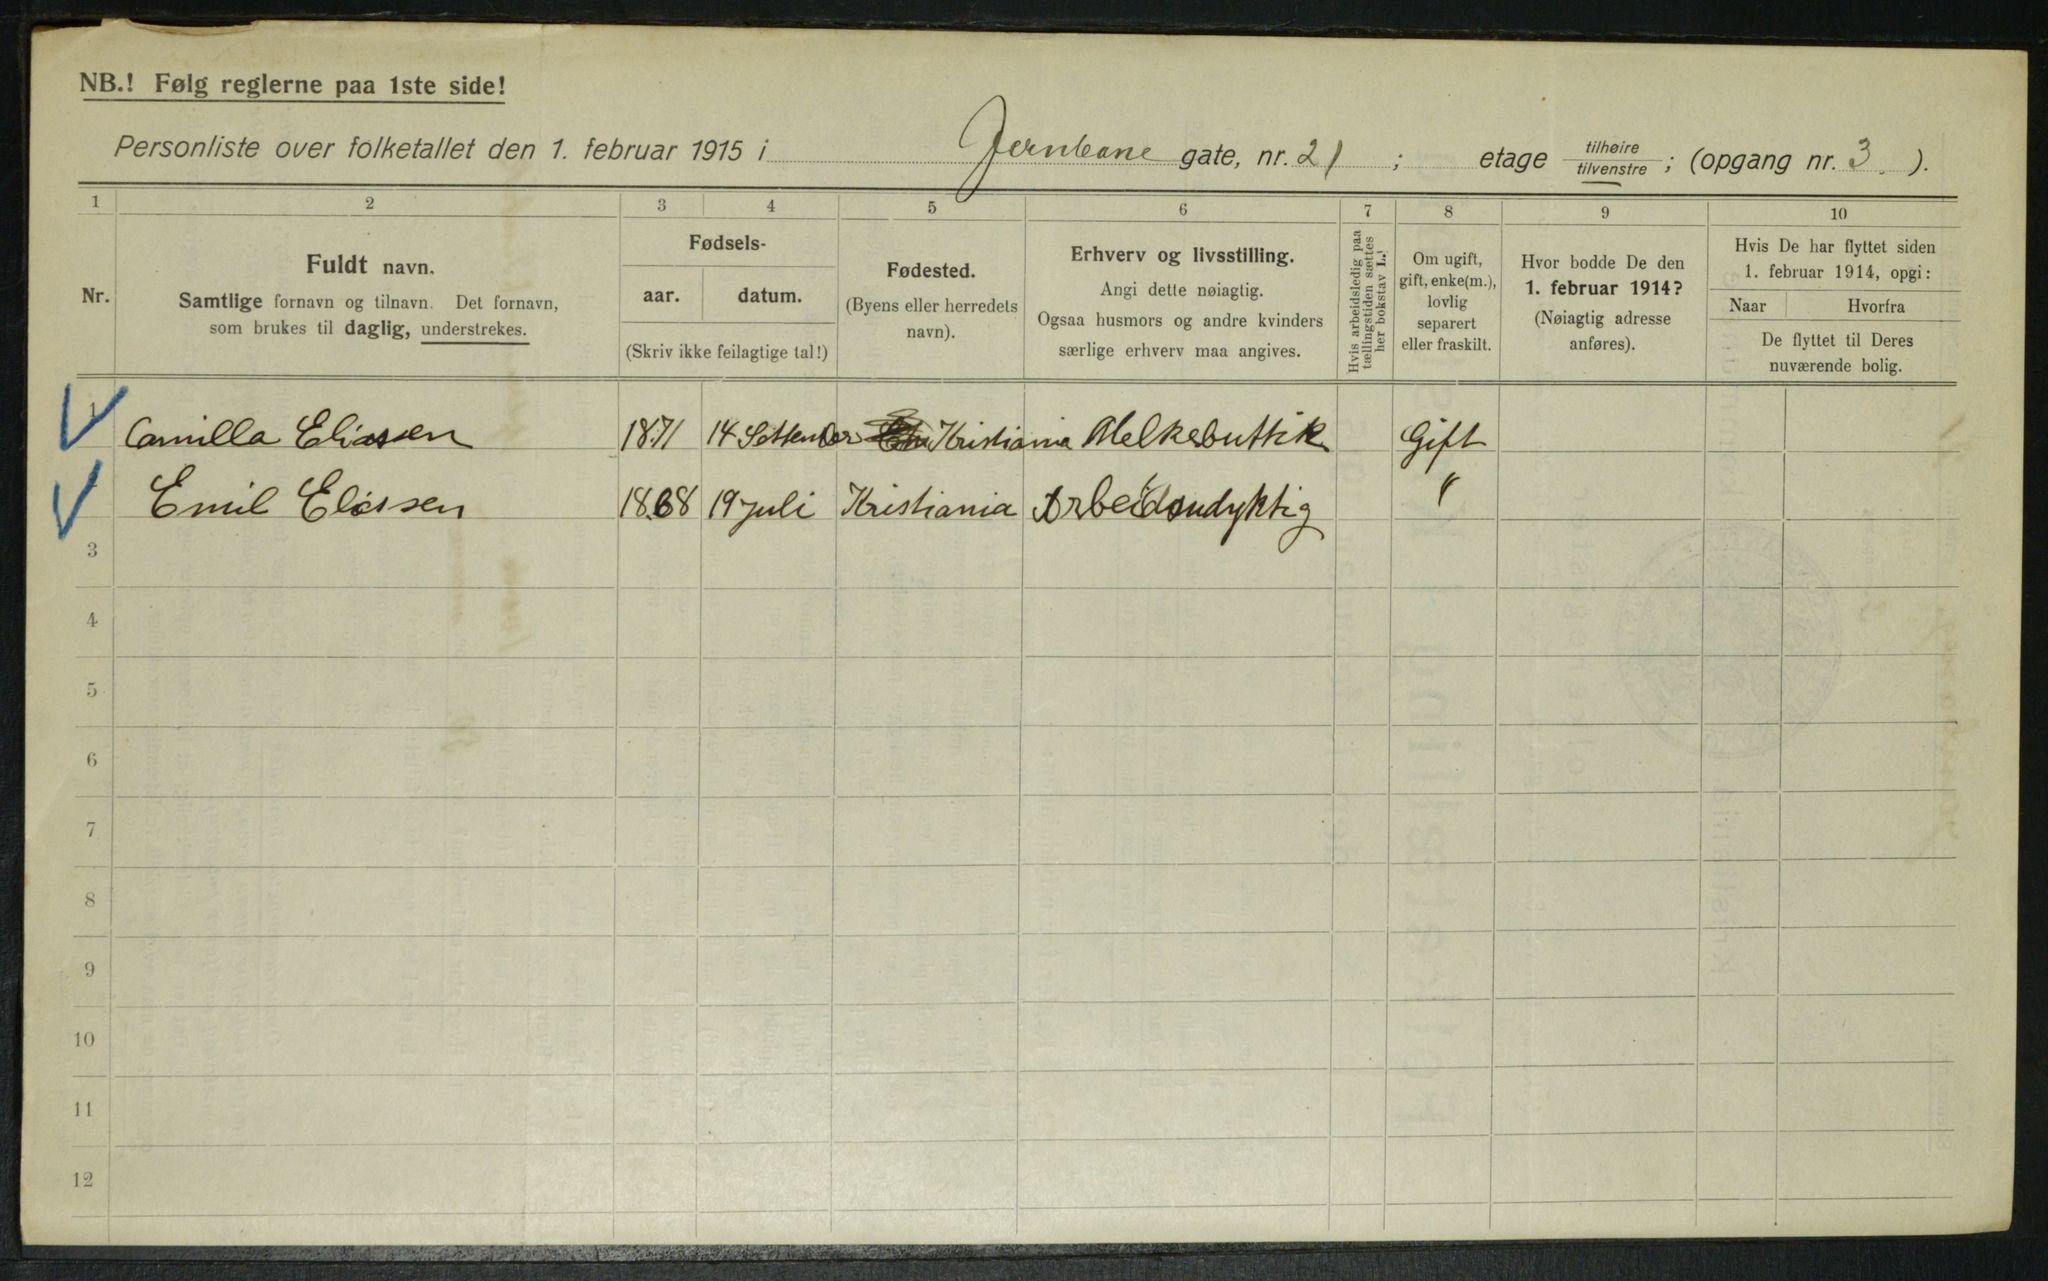 NB.! Følg reglerne paa 1ste side!
Personliste over folketallet den 1. februar 1915 i Jernbane gate, nr. 21 ; etage tilhøire tilvenstre ; (opgang nr. 3 ).
1 2 3 4 5 6 7 8 9 10
Nr.
Fuldt navn.
Samtlige fornavn og tilnavn. Det fornavn,
som brukes til daglig, understrekes.
Fødsels-
aar. datum.
(Skriv ikke feilagtige tal!)
Fødested.
(Byens eller herredets
navn).
Erhverv og livsstilling.
Angi dette nøiagtig.
Ogsaa husmors og andre kvinders
særlige erhverv maa angives.
Hvis arbeidsledig paa
tællingstiden sættes
her bokstav L.!
Om ugift,
gift, enke(m.),
lovlig
separert
eller fraskilt.
Hvor bodde De den
1. februar 1914?
(Nøiagtig adresse
anføres).
Hvis De har flyttet siden
1. februar 1914, opgi:
Naar Hvorfra
De flyttet til Deres
nuværende bolig.
1 Camilla Eliassen 1871 14 Kristiania Melkebuttik Gift
Emil Eliassen 1868 19 juli Kristiania Arbeidsudyktig "
3
4
5
6
7
8
9
10
11
12